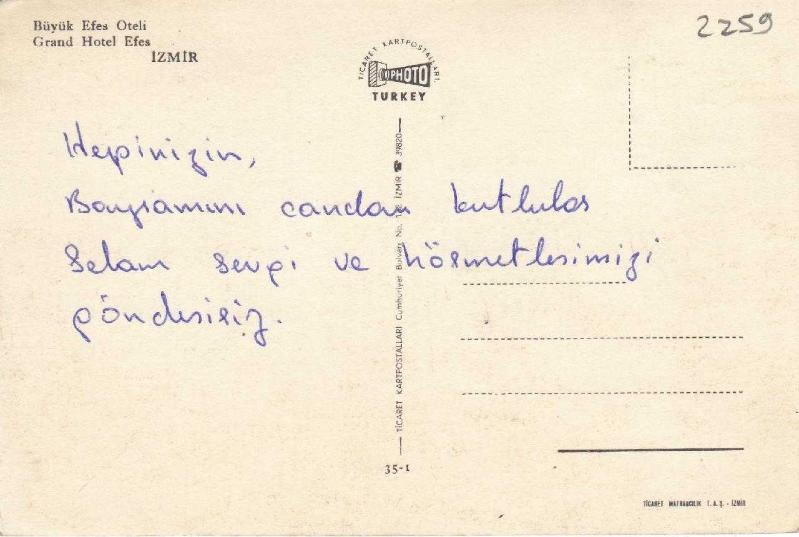 Büyük Efes Oteli
Grand Hotel Efes
İZMİR
2259
TİCARET KARTPOSTALLARI
PHOTO
TURKEY
Hepinizin,
Bayramını candan kutlular
Selam sevgi ve hörmetlerimizi
göndeririz.
TİCARET KARTPOSTALLARI Cumhuriyet Bulvarı No. İZMİR ☎ 39820
35-1
TİCARET MATBAACILIK T.A.Ş. - İZMİR